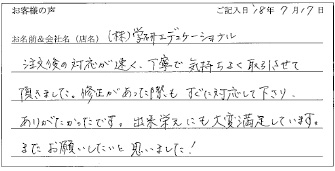 お客様の声 ご記入日 '18年 7月17日
お名前&会社名(店名) (株)学研エデュケーショナル
注文後の対応が速く、丁寧で気持ちよく取引させて
頂きました。修正があった際もすぐに対応して下さり、
ありがたかったです。出来栄えにも大変満足しています。
またお願いしたいと思いました!